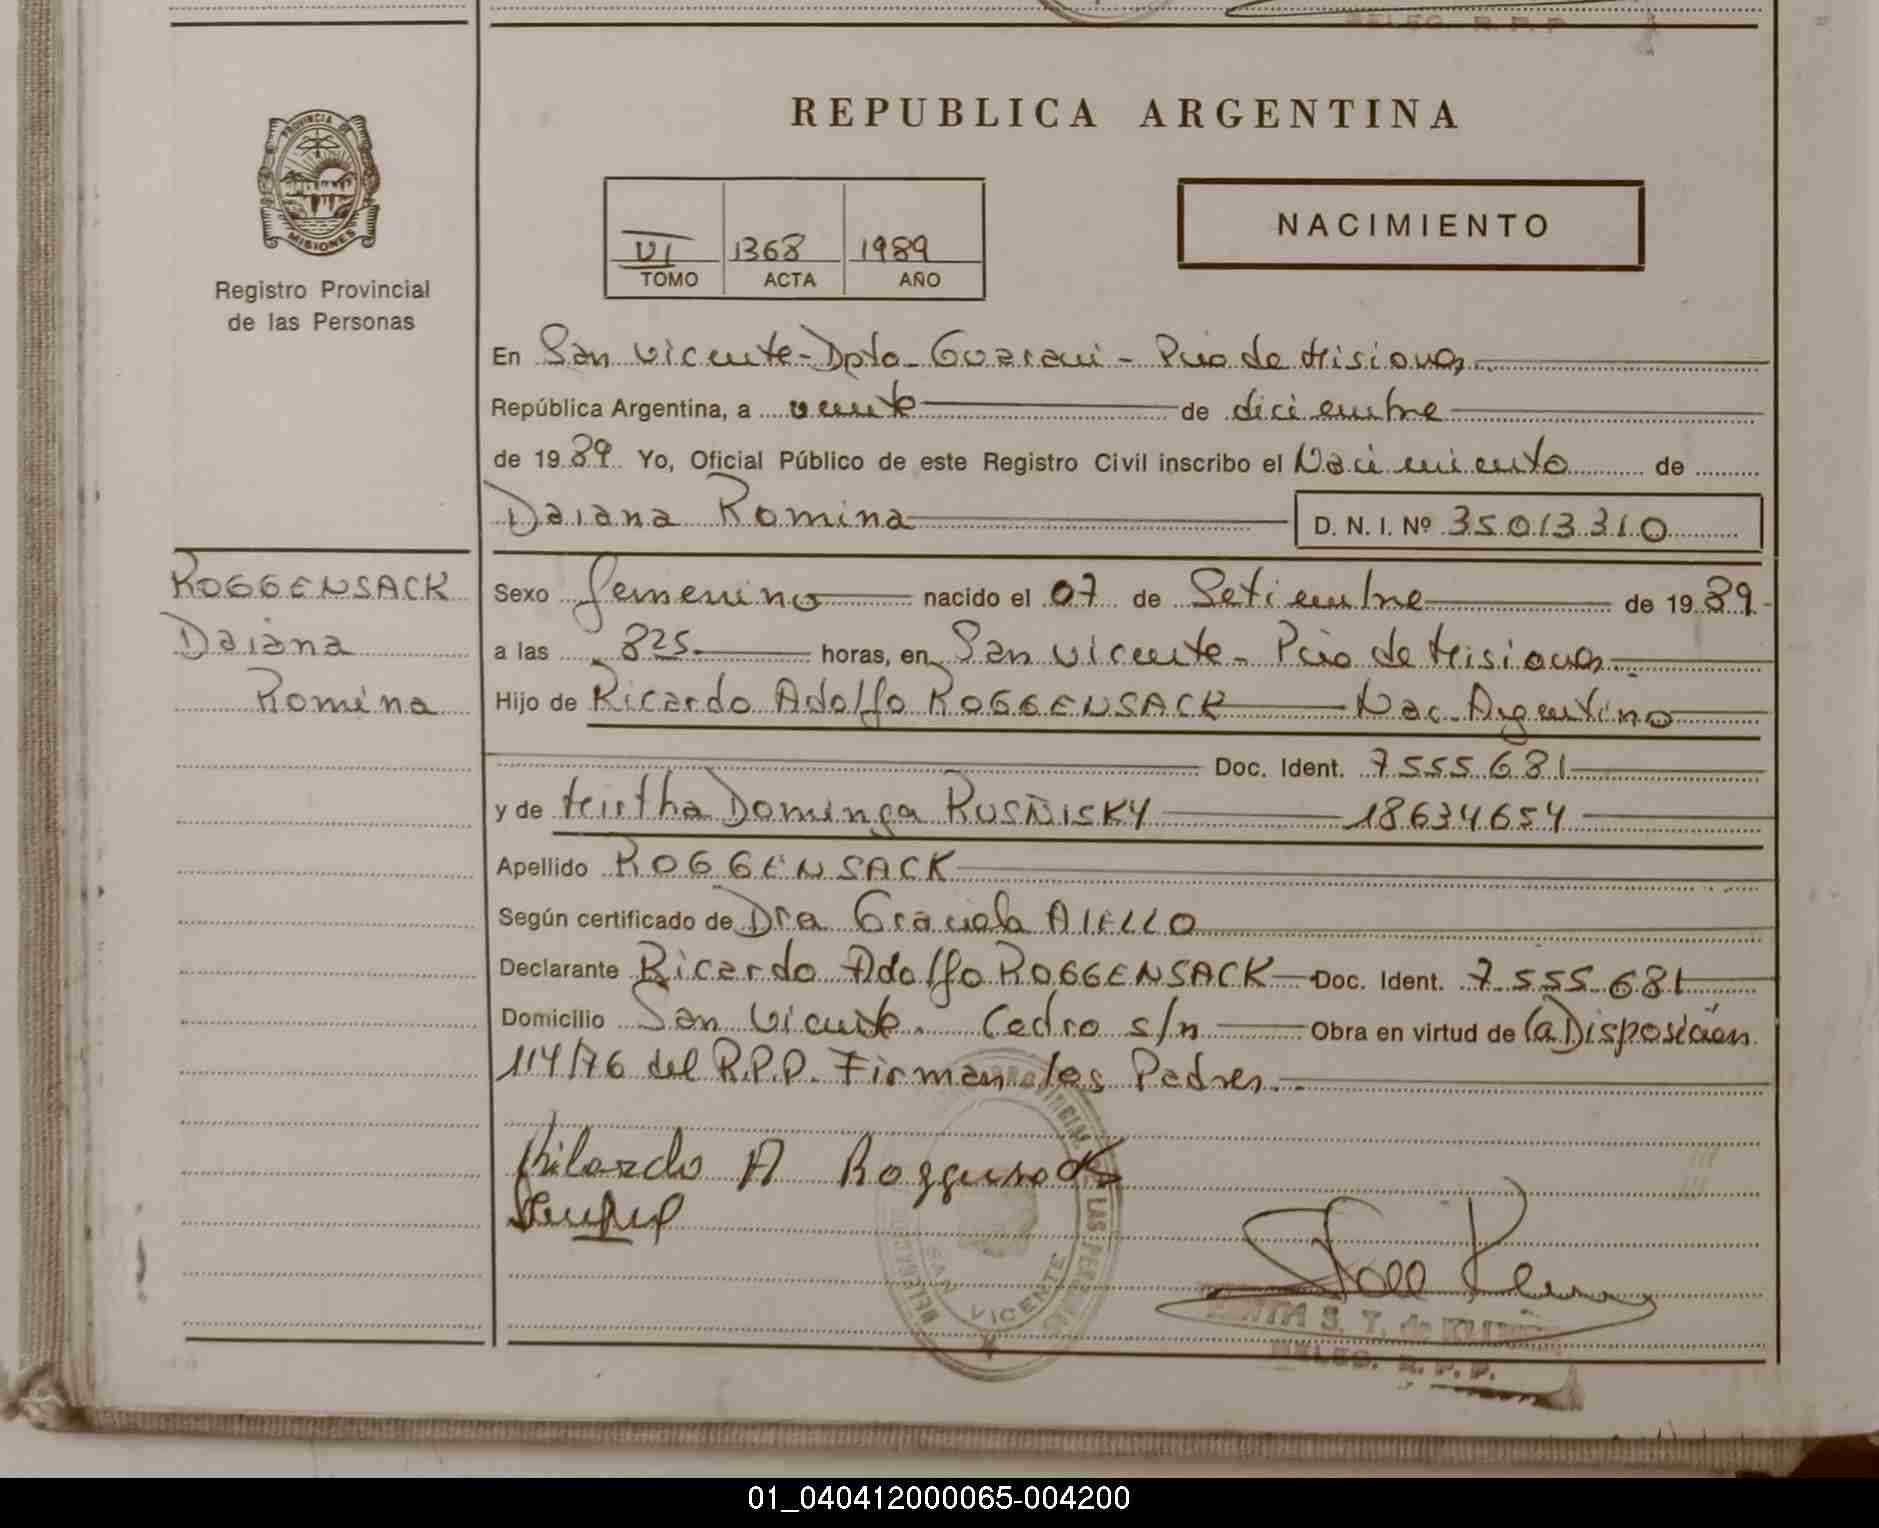 DELEG. R. P. P.
REPUBLICA ARGENTINA
PROVINCIA DE
MISIONES
Registro Provincial
de las Personas
VI 1368 1989
TOMO ACTA AÑO
NACIMIENTO
En San Vicente - Dpto - Guaraní - Pcia de Misiones
República Argentina, a veinte de diciembre
de 1989 Yo, Oficial Público de este Registro Civil inscribo el Nacimiento de
Daiana Romina D. N. I. Nº 35.013.310
ROGGENSACK
Daiana
Romina
Sexo femenino nacido el 07 de Setiembre de 1989
a las 825 horas, en San Vicente - Pcia de Misiones
Hijo de Ricardo Adolfo ROGGENSACK - Nac. Argentino
Doc. Ident. 7.555.681
y de Mirtha Dominga RUSÑISKY 18634654
Apellido ROGGENSACK
Según certificado de Dra Graciela AIELLO
Declarante Ricardo Adolfo ROGGENSACK Doc. Ident. 7.555.681
Domicilio San Vicente. Cedro s/n Obra en virtud de (a) Disposición
114/76 del R.P.P. Firman los Padres.
Ricardo A Roggensack
SAN VICENTE
S. T. de
DELEG. R. P. P.
01_040412000065-004200